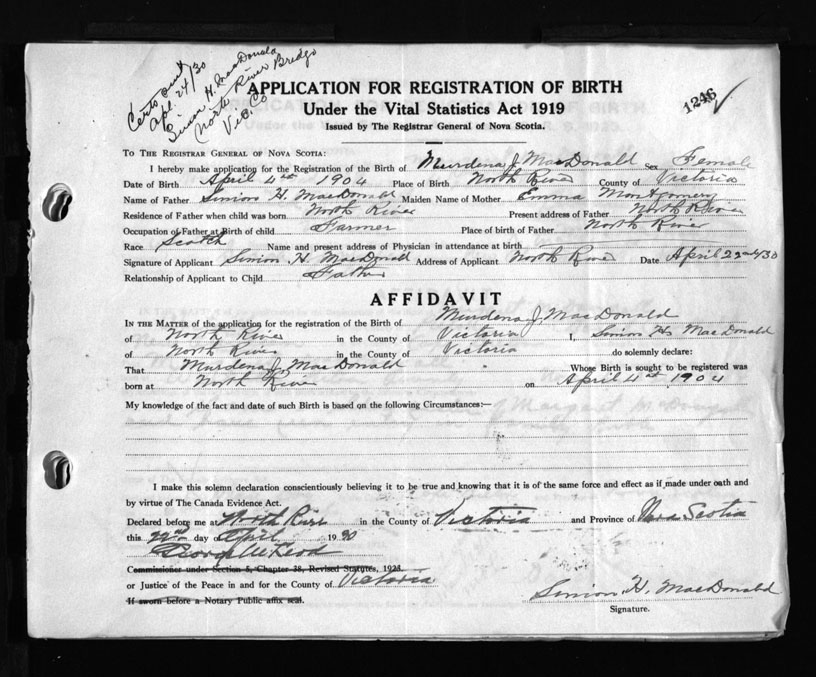 Certs out
Apl. 24/30
Simon H. MacDonald
North River Bridge
Vic. Co
APPLICATION FOR REGISTRATION OF BIRTH
1246
Under the Vital Statistics Act 1919
Issued by The Registrar General of Nova Scotia.
To The Registrar General of Nova Scotia:
I hereby make application for the Registration of the Birth of Murdena J. MacDonald Sex Female
Date of Birth April 4th 1904 Place of Birth North River County of Victoria
Name of Father Simion H. MacDonald Maiden Name of Mother Emma Montgomery
Residence of Father when child was born North River Present address of Father North River
Occupation of Father at Birth of child Farmer Place of birth of Father North River
Race Scotch Name and present address of Physician in attendance at birth
Signature of Applicant Simion H. MacDonald Address of Applicant North River Date April 22nd/30
Relationship of Applicant to Child Father
AFFIDAVIT
In the Matter of the application for the registration of the Birth of Murdena J. MacDonald
of North River in the County of Victoria I, Simion H. MacDonald
of North River in the County of Victoria do solemnly declare:
That Murdena J. MacDonald Whose Birth is sought to be registered was
born at North River on April 4th, 1904
My knowledge of the fact and date of such Birth is based on the following Circumstances:—
I make this solemn declaration conscientiously believing it to be true and knowing that it is of the same force and effect as if made under oath and
by virtue of The Canada Evidence Act.
Declared before me at North River in the County of Victoria and Province of Nova Scotia
this 22nd day of April 1930
George McLeod
Commissioner under Section 5, Chapter 38, Revised Statutes, 1923.
or Justice of the Peace in and for the County of Victoria
If sworn before a Notary Public affix seal.
Simion. H. MacDonald
Signature.